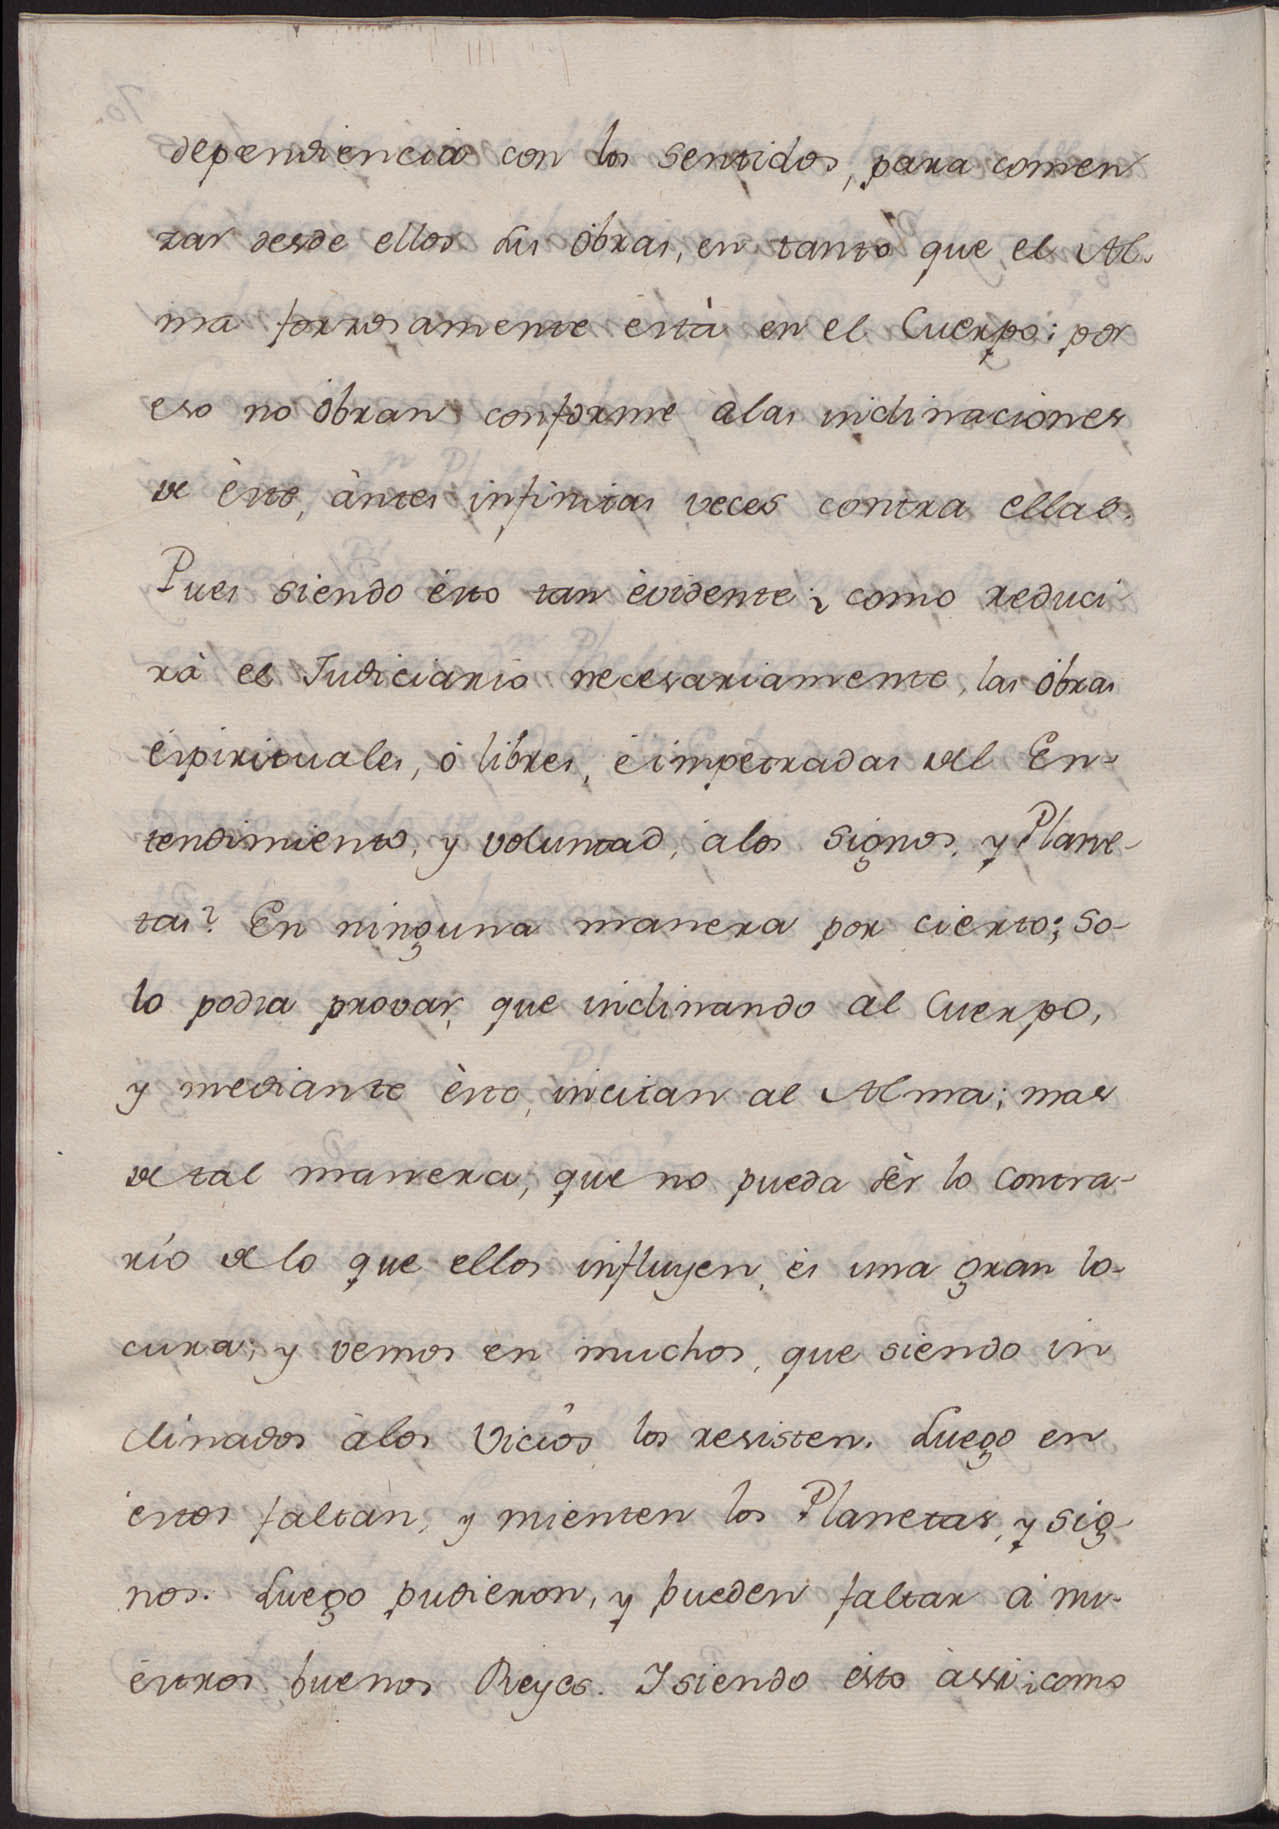 dependiencia con los sentidos, para comen
zar desde ellos sus óbras, en tanto que el Al-
ma forzosamente está en el Cuerpo; por
eso no óbran conforme alas inclinaciones
de èste, àntes infinitas veces contra ellas.
Pues siendo ésto tan èvidente; ¿como reduci
rà el Judiciario necesariamente, las óbras
éspirituales, ó libres, é impetradas del En-
tendimiento, y voluntad, àlos signos, y Plane-
tas? En ninguna manera por cierto; so-
lo podra provar, que inclinando al Cuerpo,
y mediante èste, incitan al Alma; mas
de tal manera, que no pueda sèr lo contra-
río de lo que ellos influyen, és una gran lo-
cura; y vemos en muchos, que siendo in
clinados àlos Vicios los resisten. Luego en
éstos faltan, y mienten los Planetas, y sig-
nos. Luego pudieron, y pueden faltar á nu-
éstros buenos Reyes. I siendo ésto àssi; ¿como